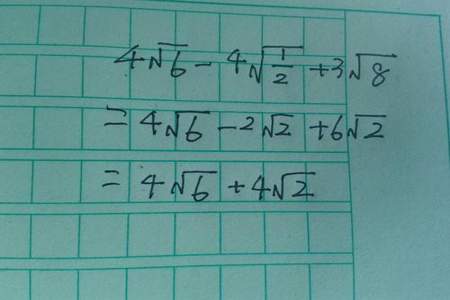 4√6 - 4√(1/2) + 3√8
= 4√6 - 2√2 + 6√2
= 4√6 + 4√2